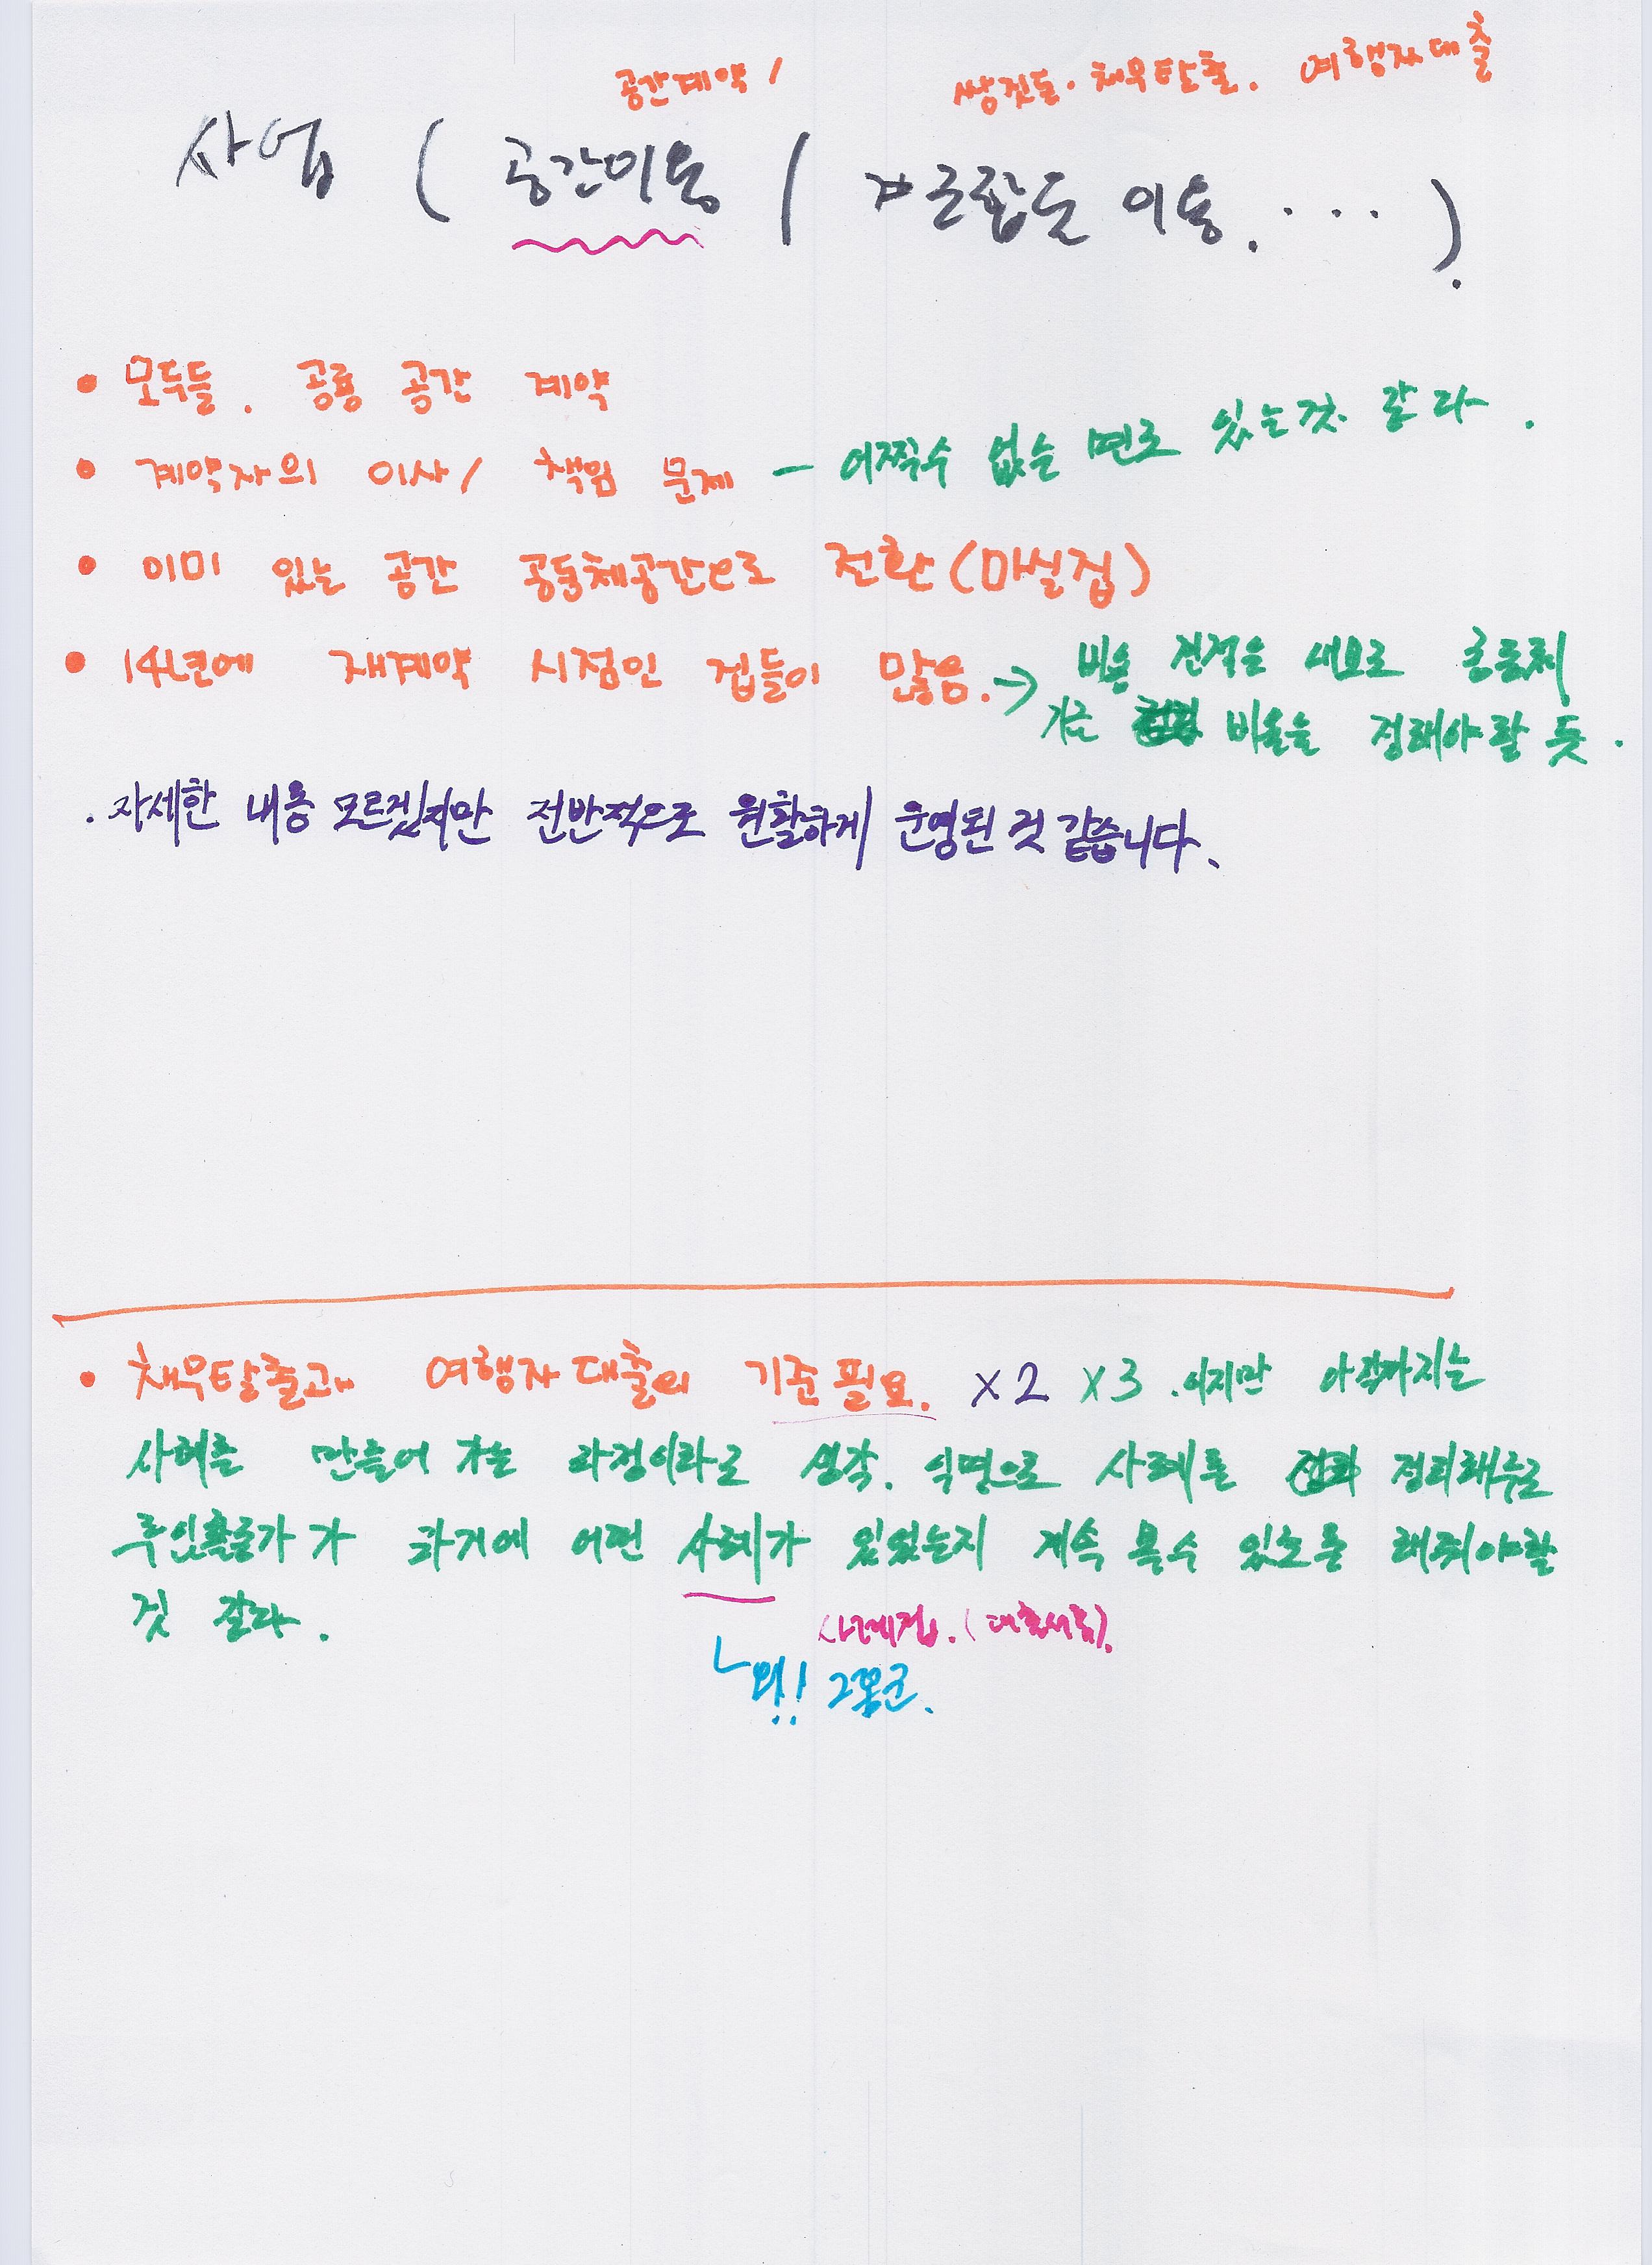 공간계약 /
쌍짓돌. 채우탈출. 여행자대출
사업 ( 공간이용 / 이용. ... ).
• 모두들. 공룡 공간 계약
• 계약자의 이사/ 책임 문제 - 어쩔수 없는 면로 있는것 같다.
• 이미 있는 공간 공동체공간으로 전환(마실집)
• 14년에 재계약 시점인 집들이 많음. → 비용 을 새보로 공동체
기금 비율을 정해야 할 듯.
. 자세한 내용 모르겠지만 전반적으로 원활하게 운영된 것 같습니다.
• 채우탈출과 여행자 대출의 기준 필요. x2 x3 .이지만 아직까지는
사례를 만들어 가는 과정이라고 생각. 익명으로 사례를 정리해두고
활동가가 과거에 어떤 사례가 있었는지 계속 볼수 있도록 해줘야할
것 같다.
사례집. (대출서류).
ㄴ 와!! 그렇군.